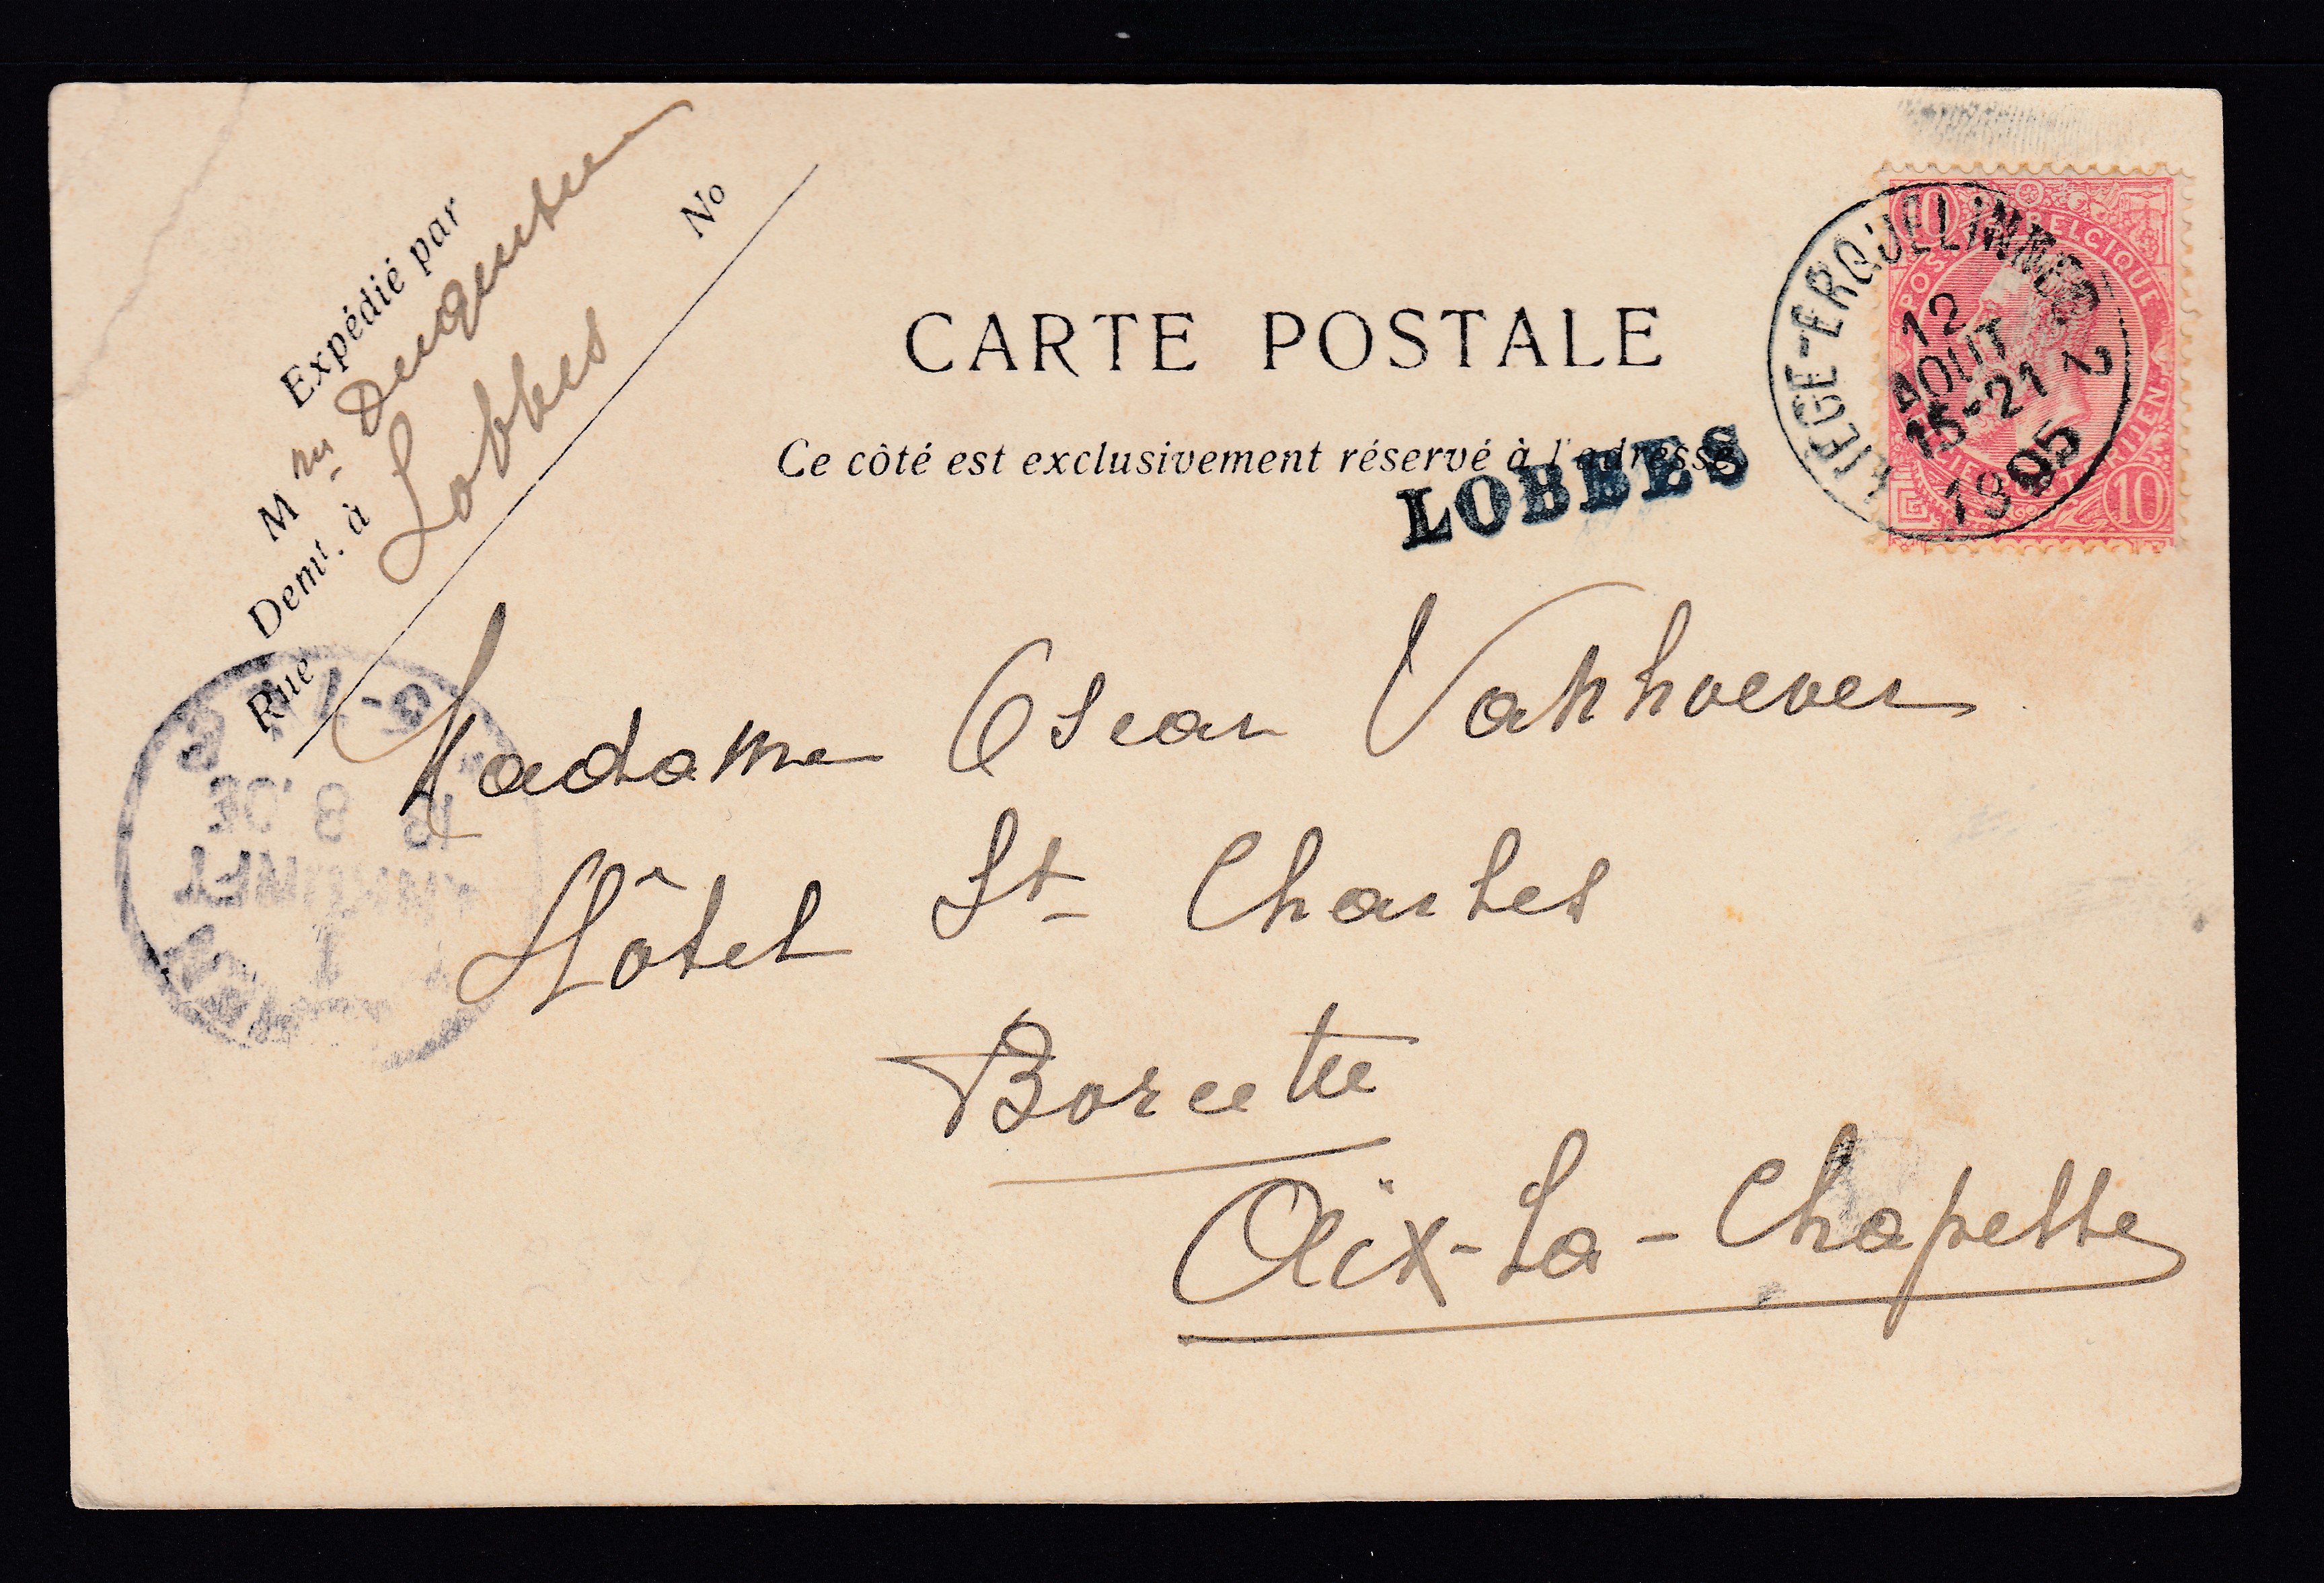 Expédié par
M
Demt. à Lobbes
Rue
No
CARTE POSTALE
Ce côté est exclusivement réservé à l'adresse
LOBBES
LIEGE-ERQUELINNES 2
12
AOUT
15-21
1905
POSTES BELGIQUE
10
10
Madame Oscar Vanhoever
Hôtel St Charles
Borcette
Aix-La-Chapelle